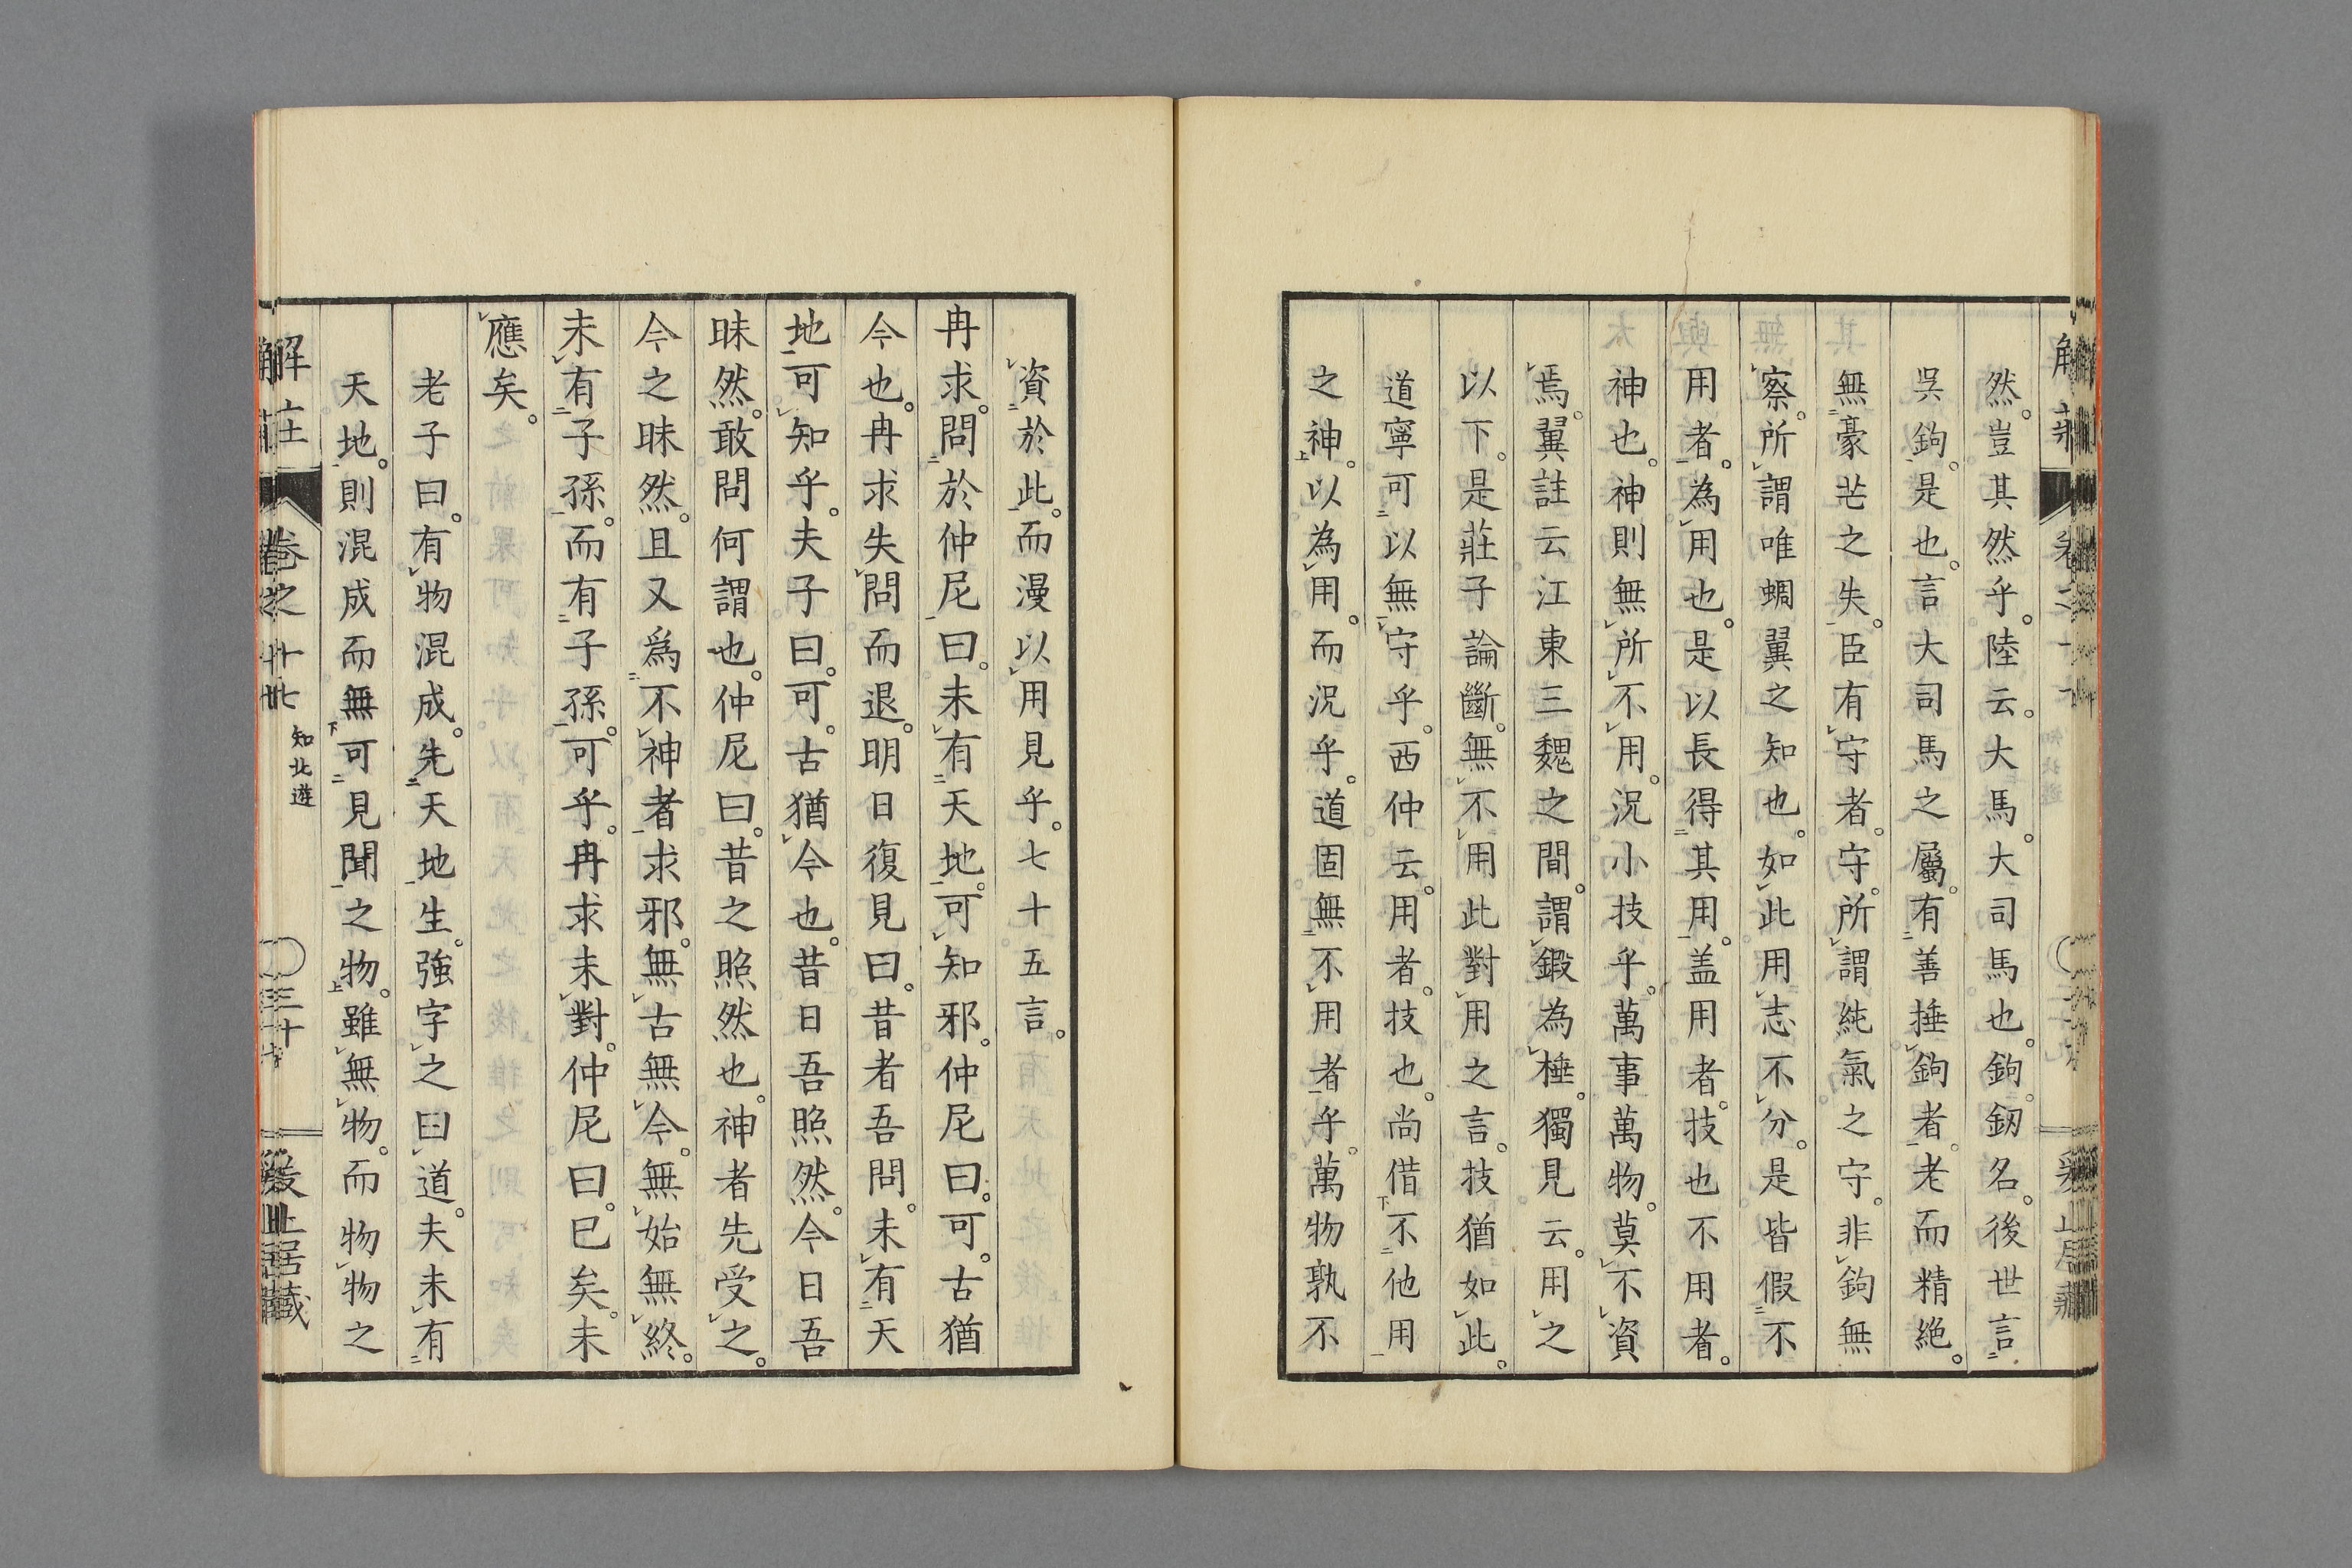 然。豈其然乎。陸云。大馬。大司馬也。鉤。釼名。後世言
吳鉤。是也。言大司馬之屬。有善捶鉤者。老而精絶。
無豪芒之失。臣有守者。守。所謂純氣之守。非鉤無
察。所謂唯蜩翼之知也。如此用志不分。是皆假不
用者。為用也。是以長得其用。盖用者。技也不用者。
神也。神則無所不用。況小技乎。萬事萬物。莫不資
焉。翼註云江東三魏之間。謂鍛為棰。獨見云。用之
以下。是莊子論斷。無不用此對用之言。技猶如此。
道寧可以無守乎。西仲云。用者。技也。尚借不他用
之神。以為用。而況乎。道固無不用者乎。萬物孰不
資於此。而漫以用見乎。七十五言。
冉求。問於仲尼曰。未有天地。可知邪。仲尼曰。可。古猶
今也。冉求失問而退。明日復見曰。昔者吾問。未有天
地可知乎。夫子曰。可。古猶今也。昔日吾昭然。今日吾
昧然。敢問何謂也。仲尼曰。昔之昭然也。神者先受之。
今之昧然。且又爲不神者求邪。無古無今。無始無終。
未有子孫。而有子孫。可乎。冉求未對。仲尼曰。已矣。未
應矣。
老子曰。有物混成。先天地生。強字之曰道。夫未有
天地。則混成而無可見聞之物。雖無物。而物物之
解莊 卷之十七 知北遊 三十